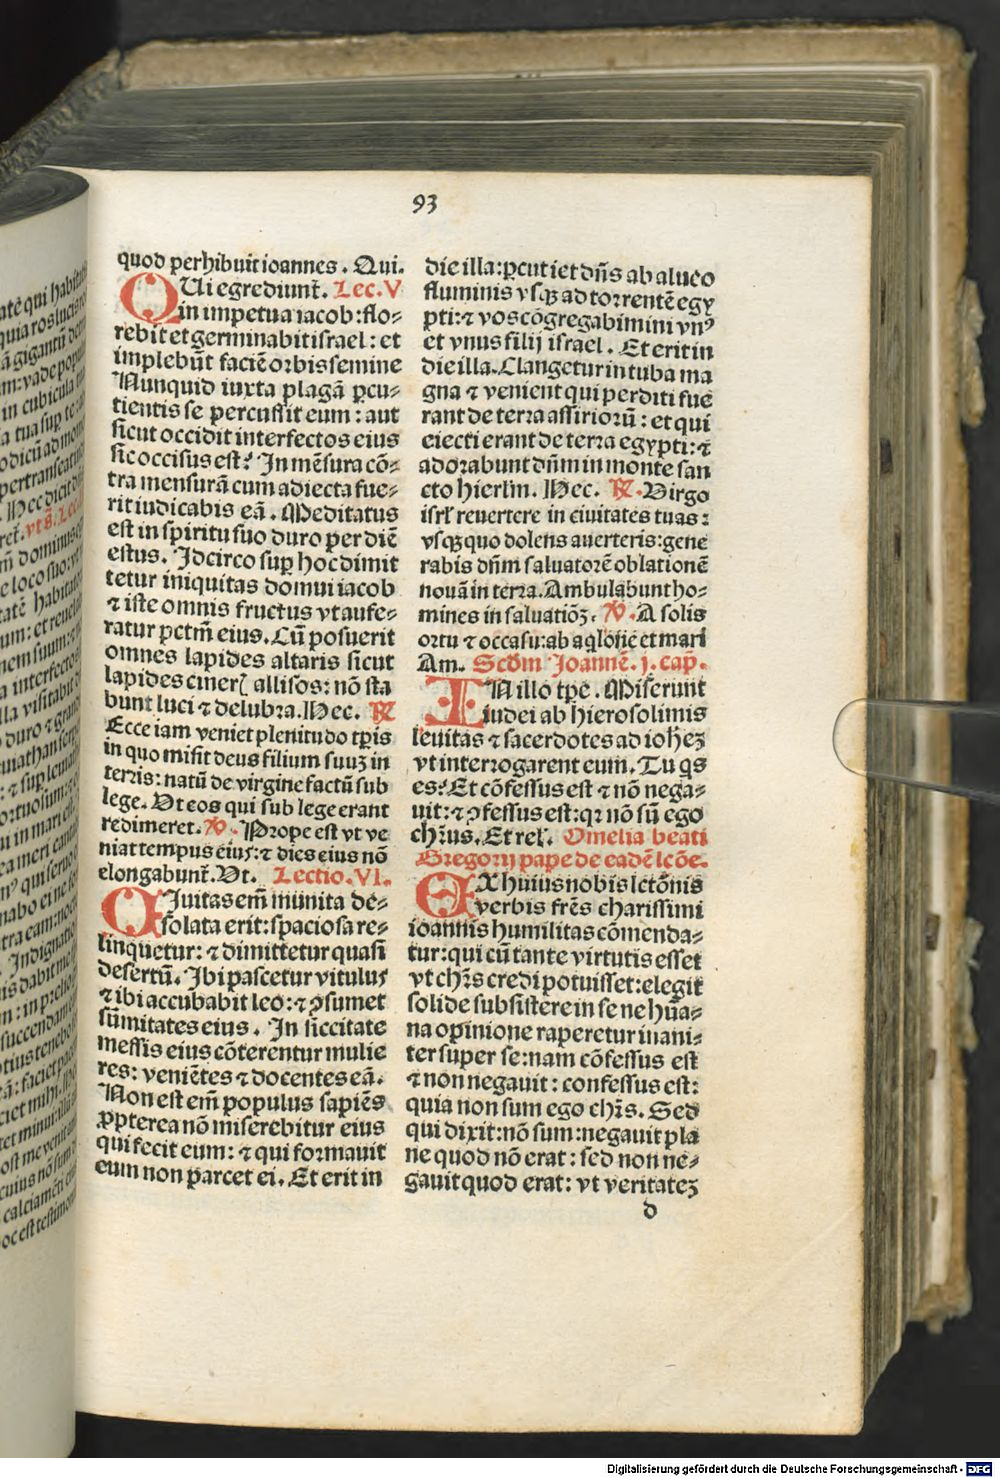 93
quod perhibuit ioannes. Qui.
QUi egrediunt̃. Lec. V
in impetu a iacob: flo⸗
rebit et germinabit israel: et
implebũt faciẽ orbis semine
Nunquid iuxta plagã ꝑcu⸗
tientis se percussit eum: aut
sicut occidit interfectos eius
sic occisus est? In mẽsura cõ⸗
tra mensurã cum adiecta fue⸗
rit iudicabis eã. Meditatus
est in spiritu suo duro per diẽ
estus. Idcirco suꝑ hoc dimit
tetur iniquitas domui iacob
⁊ iste omnis fructus vt aufe⸗
ratur pctm̃ eius. Cũ posuerit
omnes lapides altaris sicut
lapides cineꝝ allisos: nõ sta
bunt luci ⁊ delubra. Hec. ℟
Ecce iam veniet plenitudo tp̃is
in quo misit deus filium suuȝ in
terris: natũ de virgine factũ sub
lege. Vt eos qui sub lege erant
redimeret. ℣. Prope est vt ve
niat tempus eius: ⁊ dies eius nõ
elongabunt̃. Vt. Lectio. VI.
CIuitas em̃ munita de⸗
solata erit: speciosa re⸗
linquetur: ⁊ dimittetur quasi
desertũ. Ibi pascetur vitulus
⁊ ibi accubabit leo: ⁊ ꝯsumet
sũmitates eius. In siccitate
messis eius cõterentur mulie
res: veniẽtes ⁊ docentes eã.
Non est em̃ populus sapiẽs
ꝓpterea nõ miserebitur eius
qui fecit eum: ⁊ qui formauit
eum non parcet ei. Et erit in
die illa: ꝑcutiet dñs ab alueo
fluminis vsqꝫ ad torrentẽ egy
pti: ⁊ vos cõgregabimini vnꝰ
et vnus filij israel. Et erit in
die illa. Clangetur in tuba ma
gna ⁊ venient qui perditi fue
rant de terra assiriorũ: et qui
eiecti erant de terra egypti: ⁊
adorabunt dñm in monte san
cto hierlm̃. Hec. ℟. Virgo
isrl̃ reuertere in ciuitates tuas:
vsqꝫ quo dolens auerteris: gene
rabis dñm saluatorẽ oblationẽ
nouã in terra. Ambulabunt ho⸗
mines in saluatiõȝ. ℣. A solis
ortu ⁊ occasu: ab aqlõie et mari
Am. Scd̃m Ioannẽ. j. cap̃.
IN illo tp̃e. Miserunt
iudei ab hierosolimis
leuitas ⁊ sacerdotes ad iohẽȝ
vt interrogarent eum. Tu qs
es? Et cõfessus est ⁊ nõ nega⸗
uit: ⁊ ꝯfessus est: qꝛ nõ sũ ego
chr̃us. Et rel̃. Omelia beati
Gregorij pape de eadẽ lcõe.
EX huius nobis lctõnis
verbis frẽs charissimi
ioannis humilitas cõmenda⸗
tur: qui cũ tante virtutis esset
vt chr̃s credi potuisset: elegit
solide subsistere in se ne hũa⸗
na opinione raperetur inani⸗
ter super se: nam cõfessus est
⁊ non negauit: confessus est:
quia non sum ego chr̃s. Sed
qui dixit: nõ sum: negauit pla
ne quod nõ erat: sed non ne⸗
gauit quod erat: vt veritateȝ
d
Digitalisierung gefördert durch die Deutsche Forschungsgemeinschaft - DFG